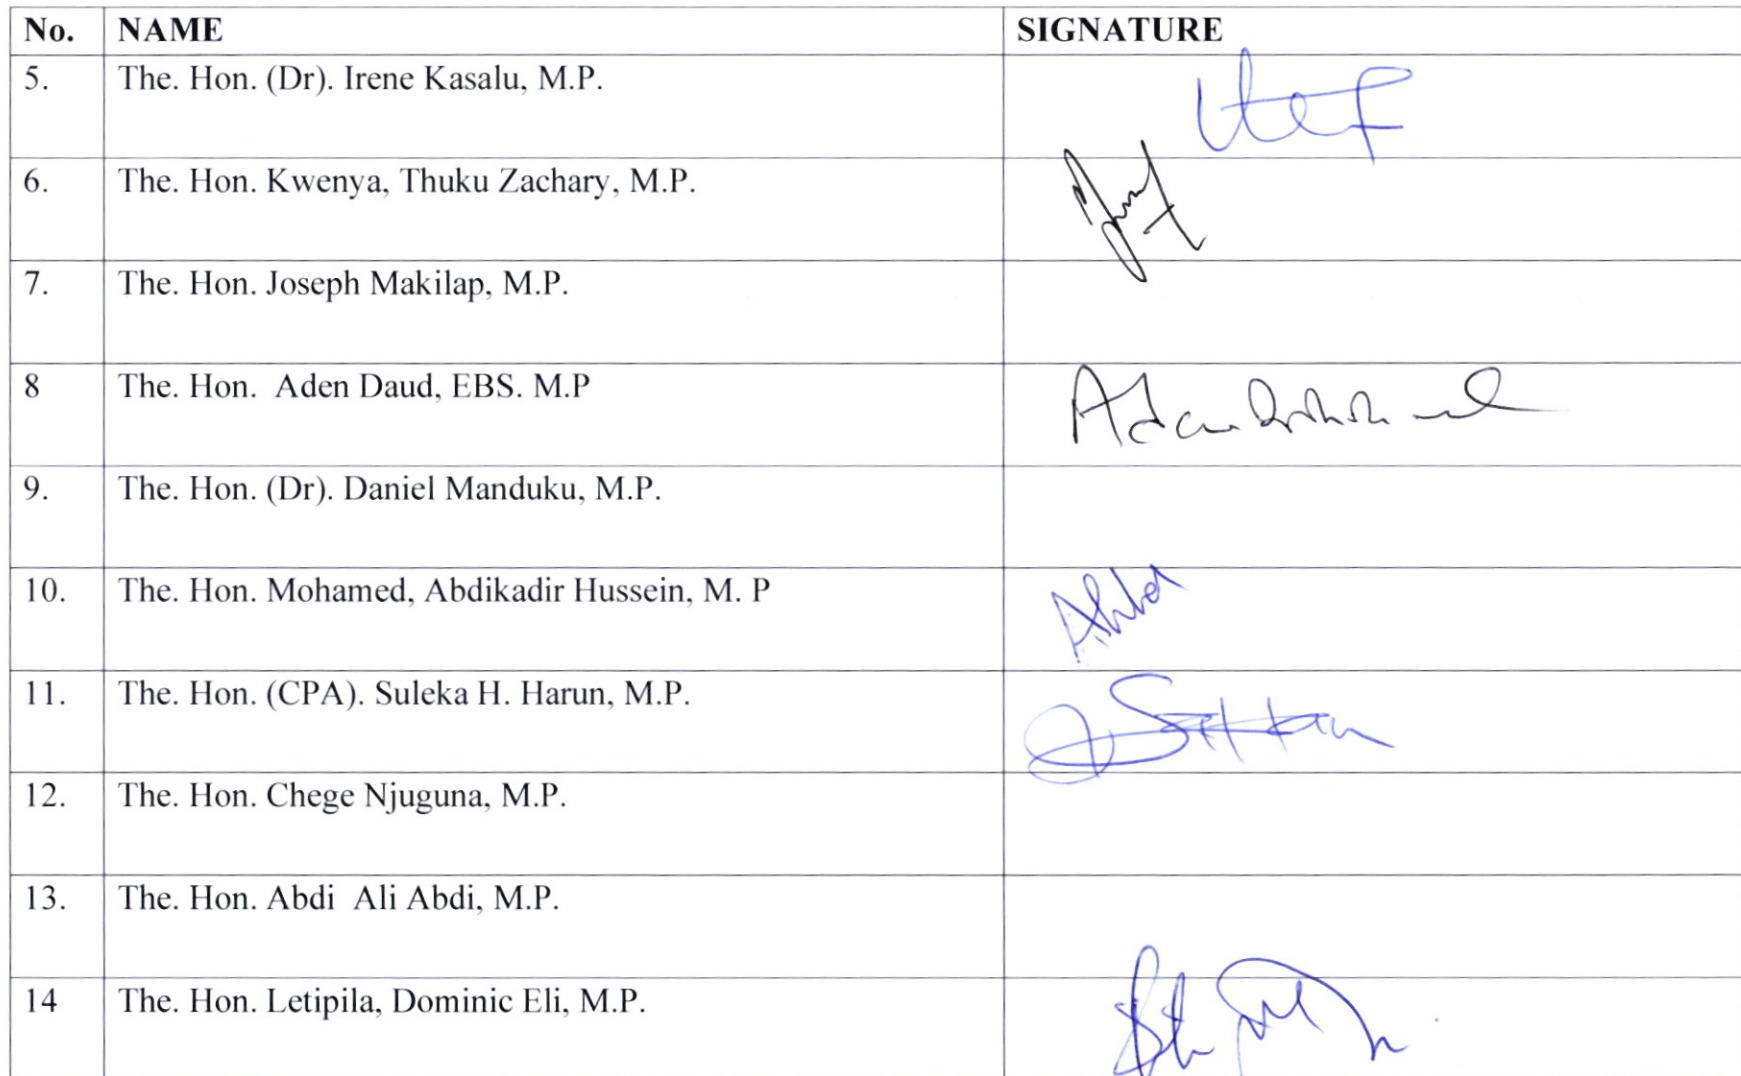 No. NAME SIGNATURE
5. The. Hon. (Dr). Irene Kasalu, M.P.
6. The. Hon. Kwenya, Thuku Zachary, M.P.
7. The. Hon. Joseph Makilap, M.P.
8 The. Hon.  Aden Daud, EBS. M.P
9. The. Hon. (Dr). Daniel Manduku, M.P.
10. The. Hon. Mohamed, Abdikadir Hussein, M. P
11. The. Hon. (CPA). Suleka H. Harun, M.P.
12. The. Hon. Chege Njuguna, M.P.
13. The. Hon. Abdi  Ali Abdi, M.P.
14 The. Hon. Letipila, Dominic Eli, M.P.